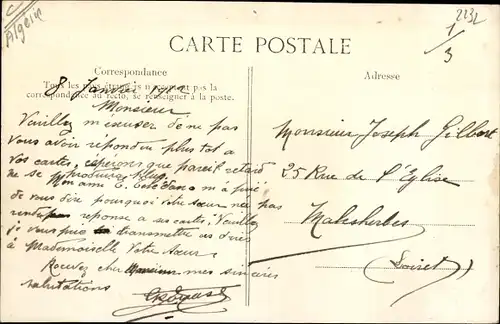 Algérie
2232
1/3
CARTE POSTALE
Correspondance
Tous les pays étrangers n'acceptent pas la
correspondance au recto, se renseigner à la poste.
Adresse
8 Janvier 1912
Monsieur
Veuillez m'excuser de ne pas
vous avoir répondu plus tôt à
vos cartes, espérons que pareil retard
ne se produira plus.
Mon ami E. m'a prié
de vous dire pourquoi votre sœur ne
rend pas réponse a ses cartes. Veuillez
je vous prie transmettre ces dires
à Mademoiselle Votre Sœur
Recevez cher Monsieur mes sincères
salutations
Monsieur Joseph Gilbert
25 Rue de l'Eglise
Malesherbes
(Loiret)